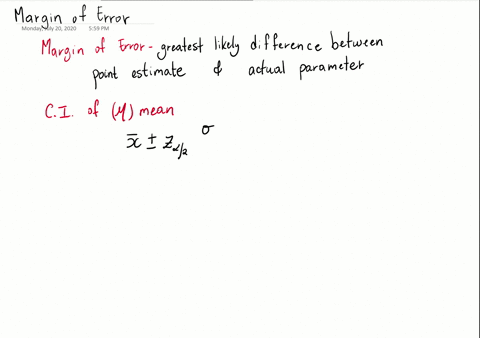 Margin of Error
Monday, July 20, 2020 5:59 PM
Margin of Error - greatest likely difference between
point estimate & actual parameter
C.I. of (μ) mean
x̄ ± z_α/2 σ